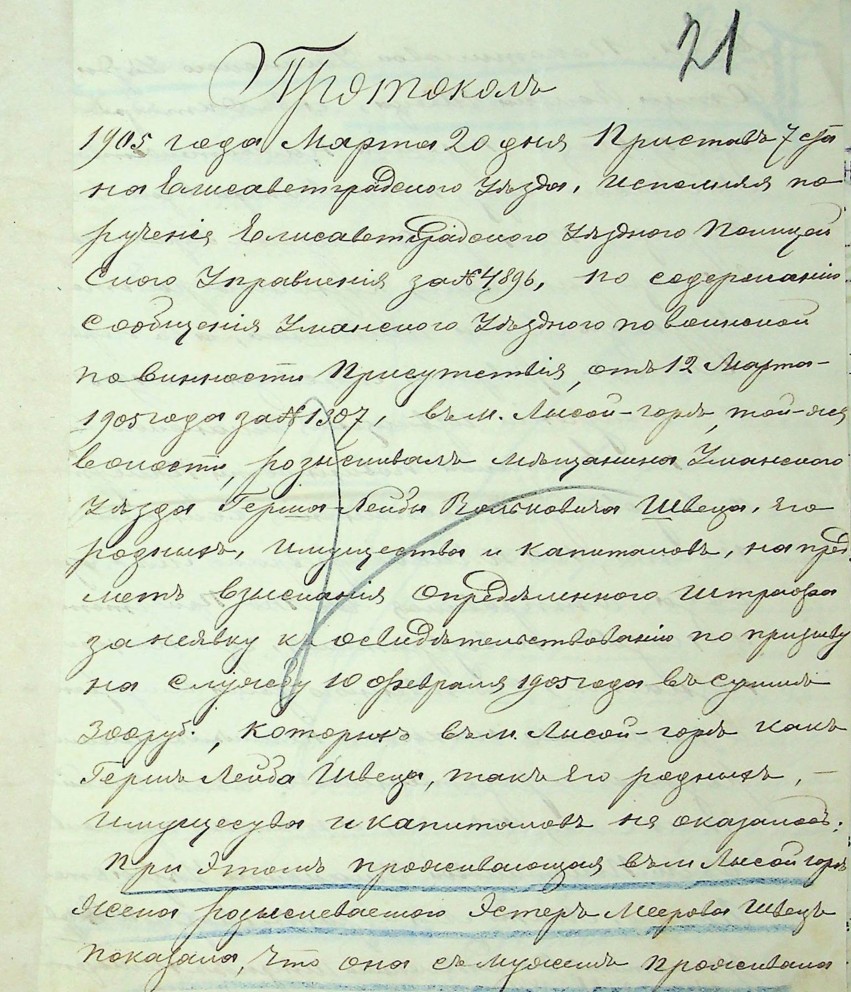 21
Протоколъ
1905 года Марта 20 дня Приставъ 7 ста
на Елисаветградского Уѣзда, исполняя по
рученія Елисаветградского Уѣздного Полицей
ского Управленія за № 4896, по содержанію
сообщенія Уманского Уѣздного по воинской
повинности Присутствія, отъ 12 Марта
1905 года за № 1307, въ м. Лысой-горѣ, той-же
волости, розыскивалъ мѣщанина Уманского
Уѣзда Герша-Лейбы Вольковича Швеца, его
родныхъ, имущества и капиталовъ, на пред
метъ взысканія опредѣленного штрафа
за неявку къ освидѣтельствованію по призыву
на службу 10 февраля 1905 года въ суммѣ
300 руб., которыхъ въ м. Лысой-горѣ какъ
Гершъ Лейба Швеца, такъ его родныхъ, –
имущесува и капиталовъ не оказалось;
При этомъ проживающая въ м. Лысой горѣ
жена розыскеваемого Эстеръ Меерова Швецъ
показала, что она съ мужемъ проживала